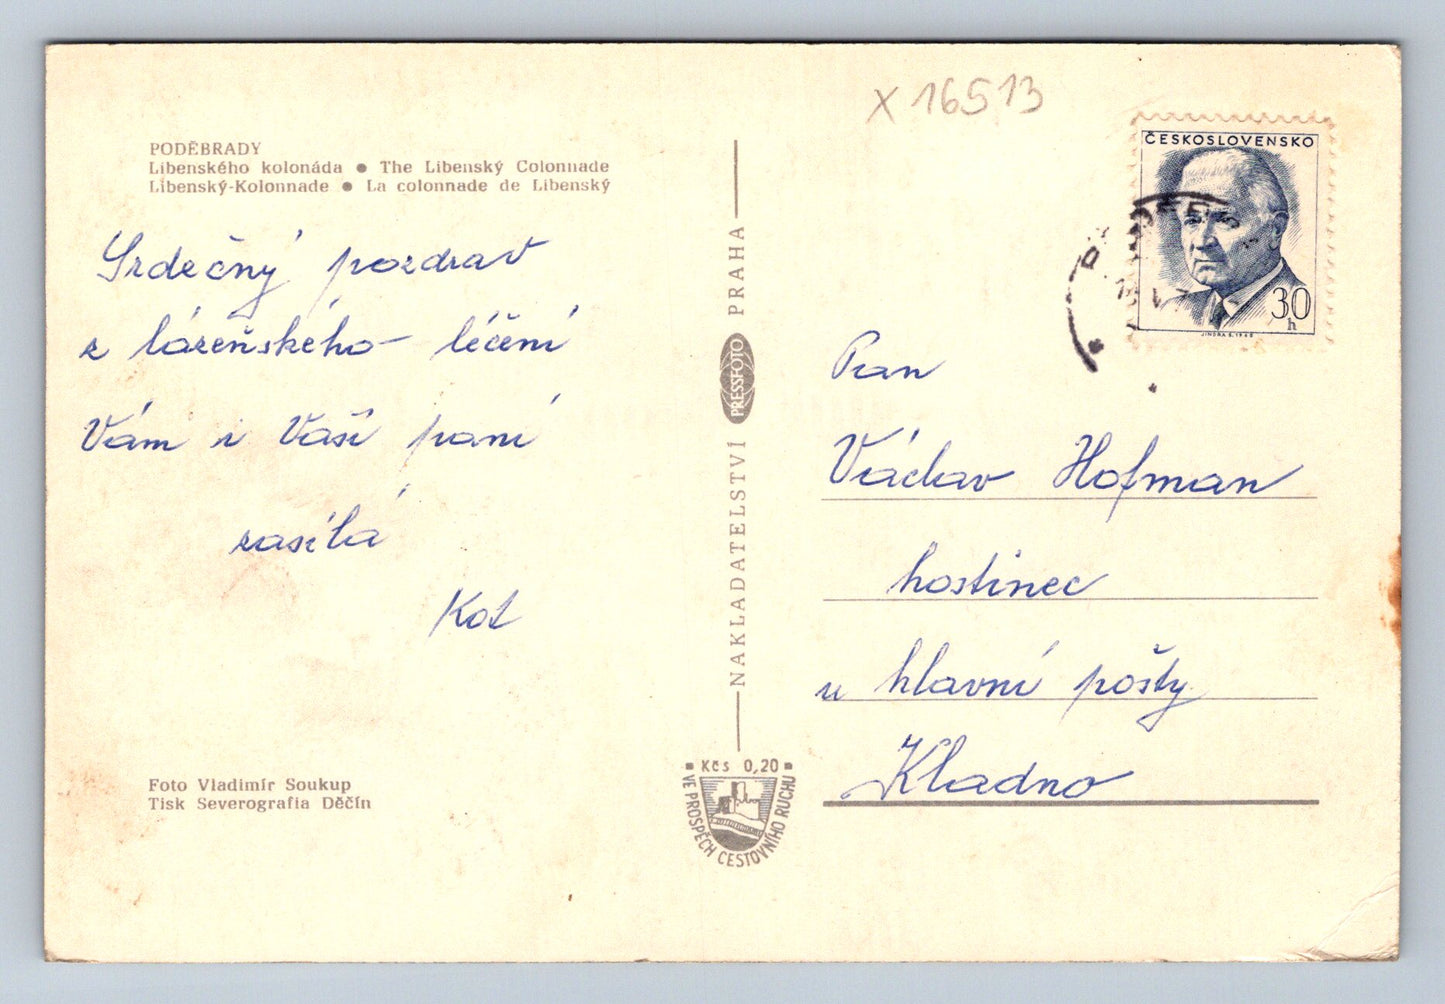 X 16513
PODĚBRADY
Libenského kolonáda ● The Libenský Colonnade
Libenský-Kolonnade ● La colonnade de Libenský
Srdečný pozdrav
z lázeňského léčení
Vám i Vaší paní
zasílá
Kot
Foto Vladimír Soukup
Tisk Severografia Děčín
NAKLADATELSTVÍ PRESSFOTO PRAHA
Kčs 0,20
VE PROSPĚCH CESTOVNÍHO RUCHU
ČESKOSLOVENSKO
30
h
Pan
Václav Hofman
hostinec
u hlavní pošty
Kladno